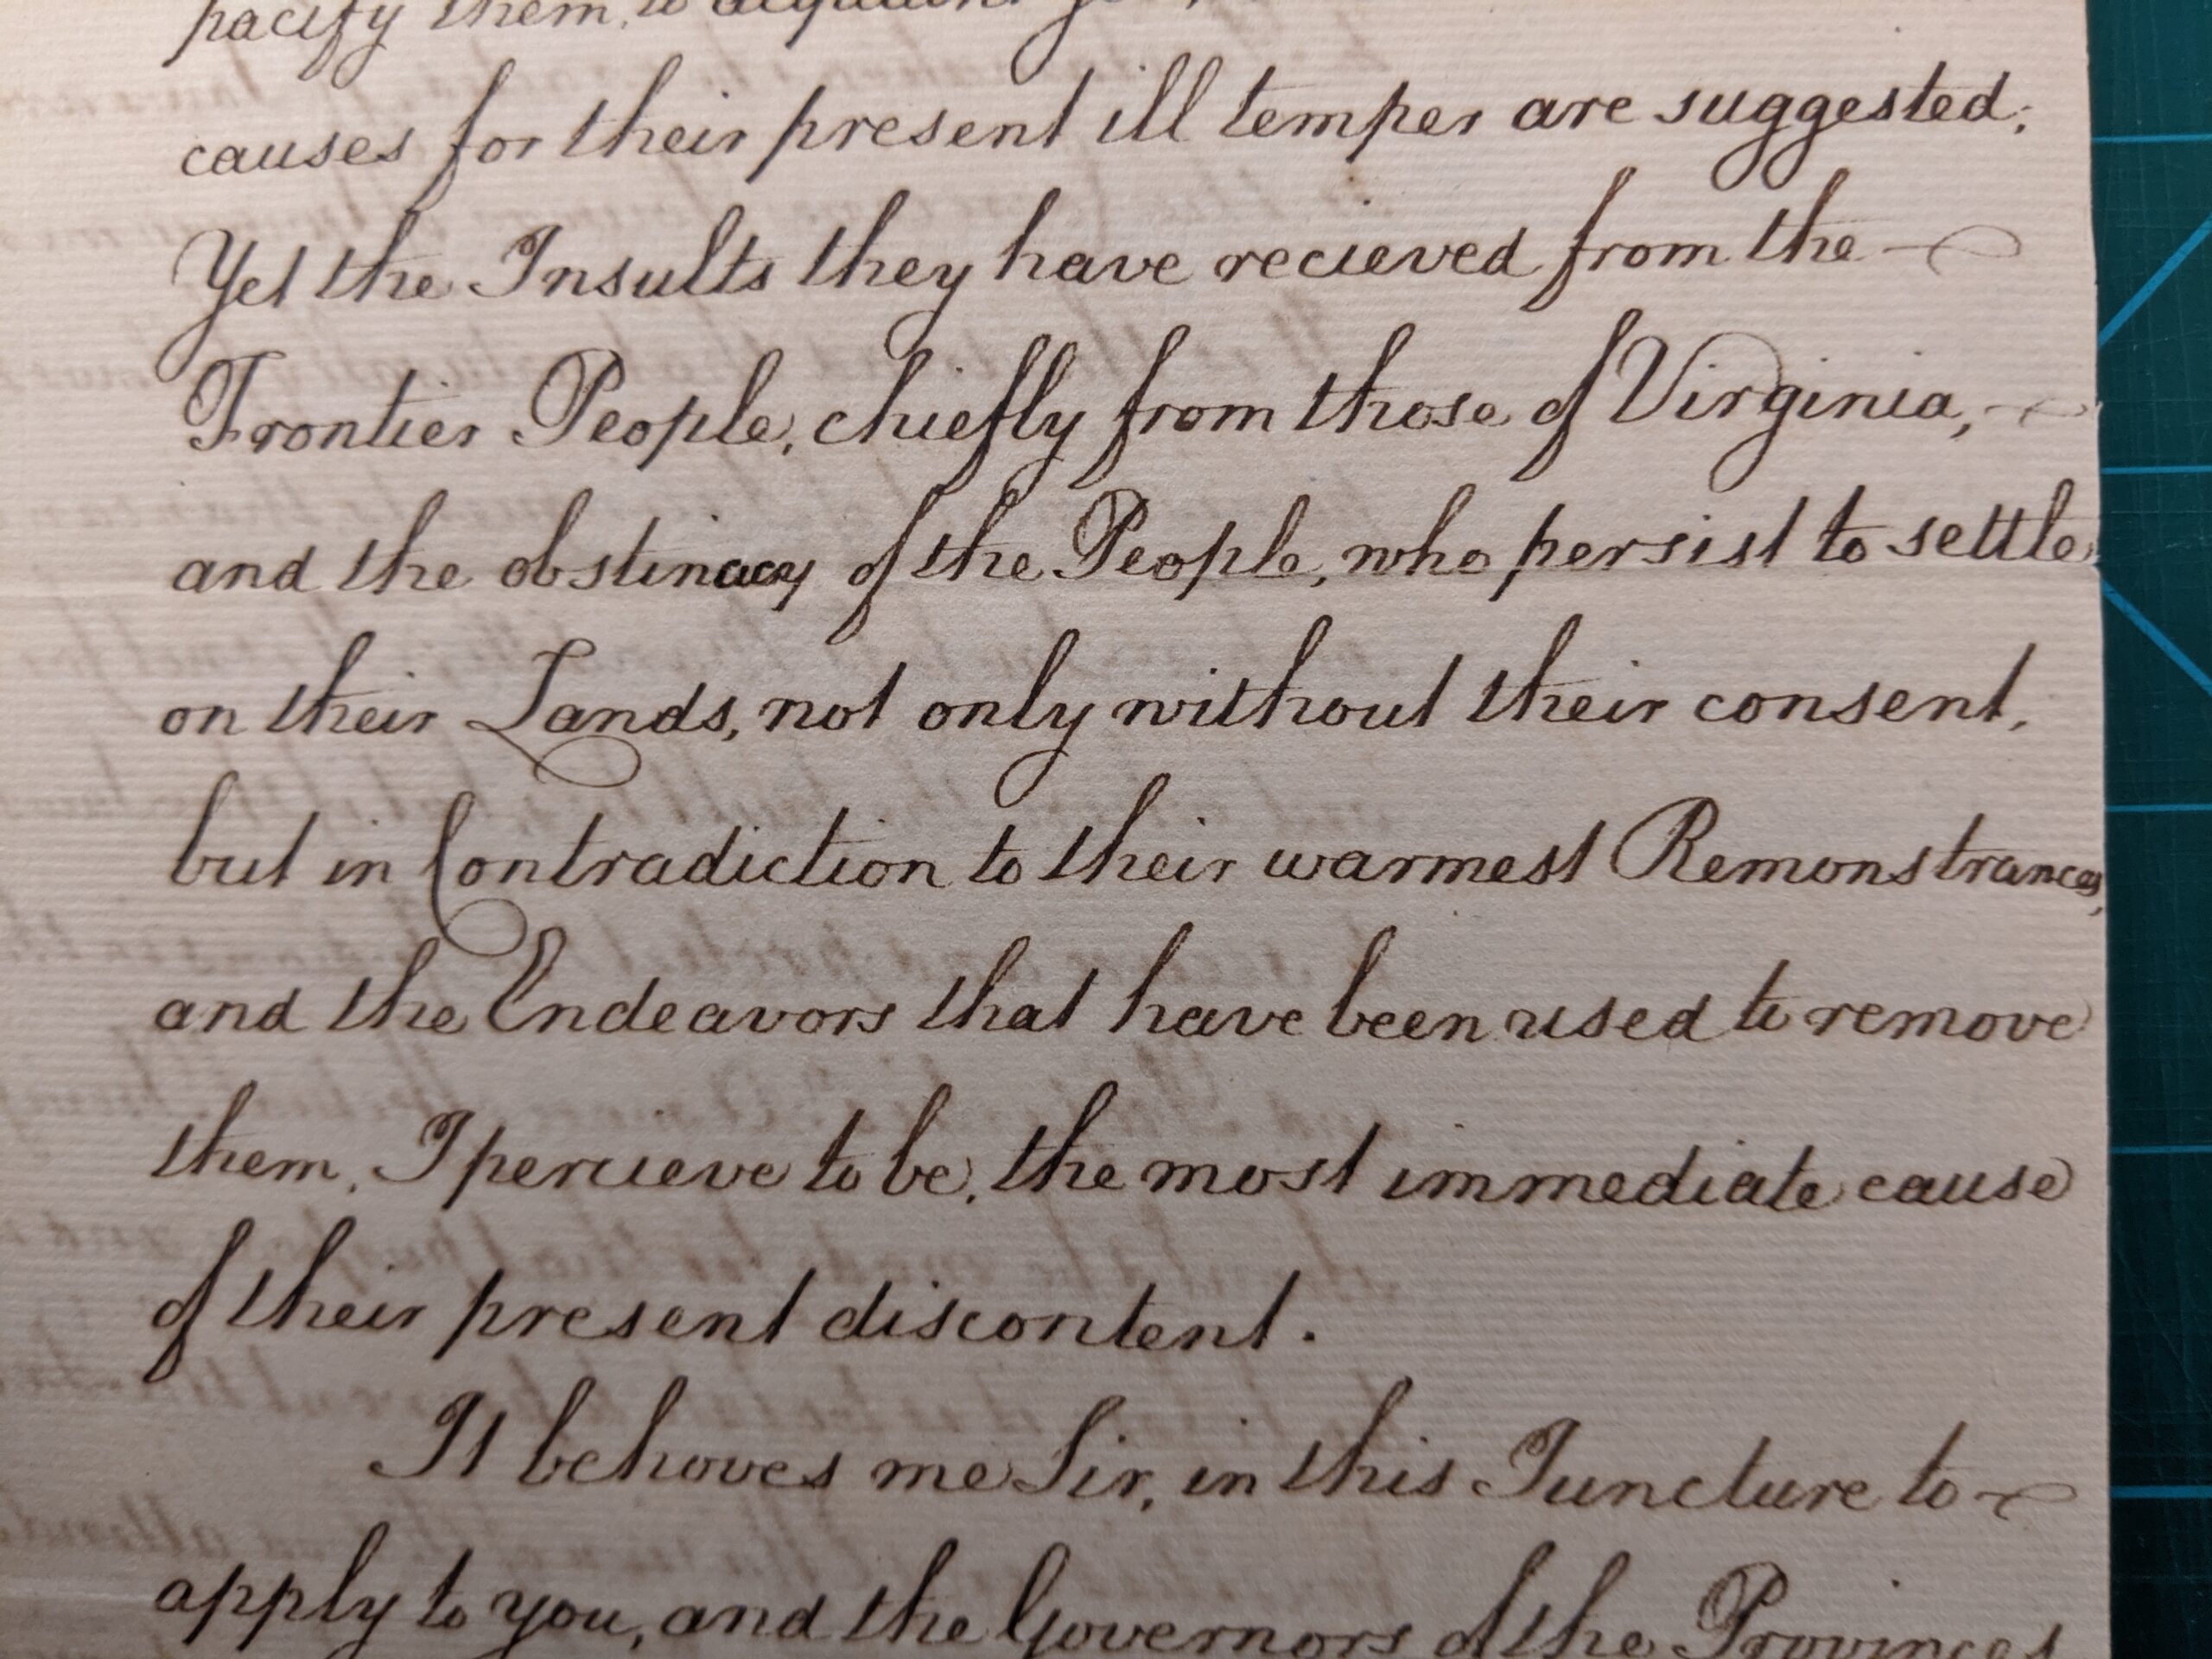 pacify them, to acquaint
causes for their present ill temper are suggested;
Yet the Insults they have recieved from the
Frontier People, chiefly from those of Virginia,
and the obstinacy of the People, who persist to settle
on their Lands, not only without their consent,
but in Contradiction to their warmest Remonstrances,
and the Endeavors that have been used to remove
them, I percieve to be, the most immediate cause
of their present discontent.
It behoves me Sir, in this Juncture to
apply to you, and the Governors of the Provinces